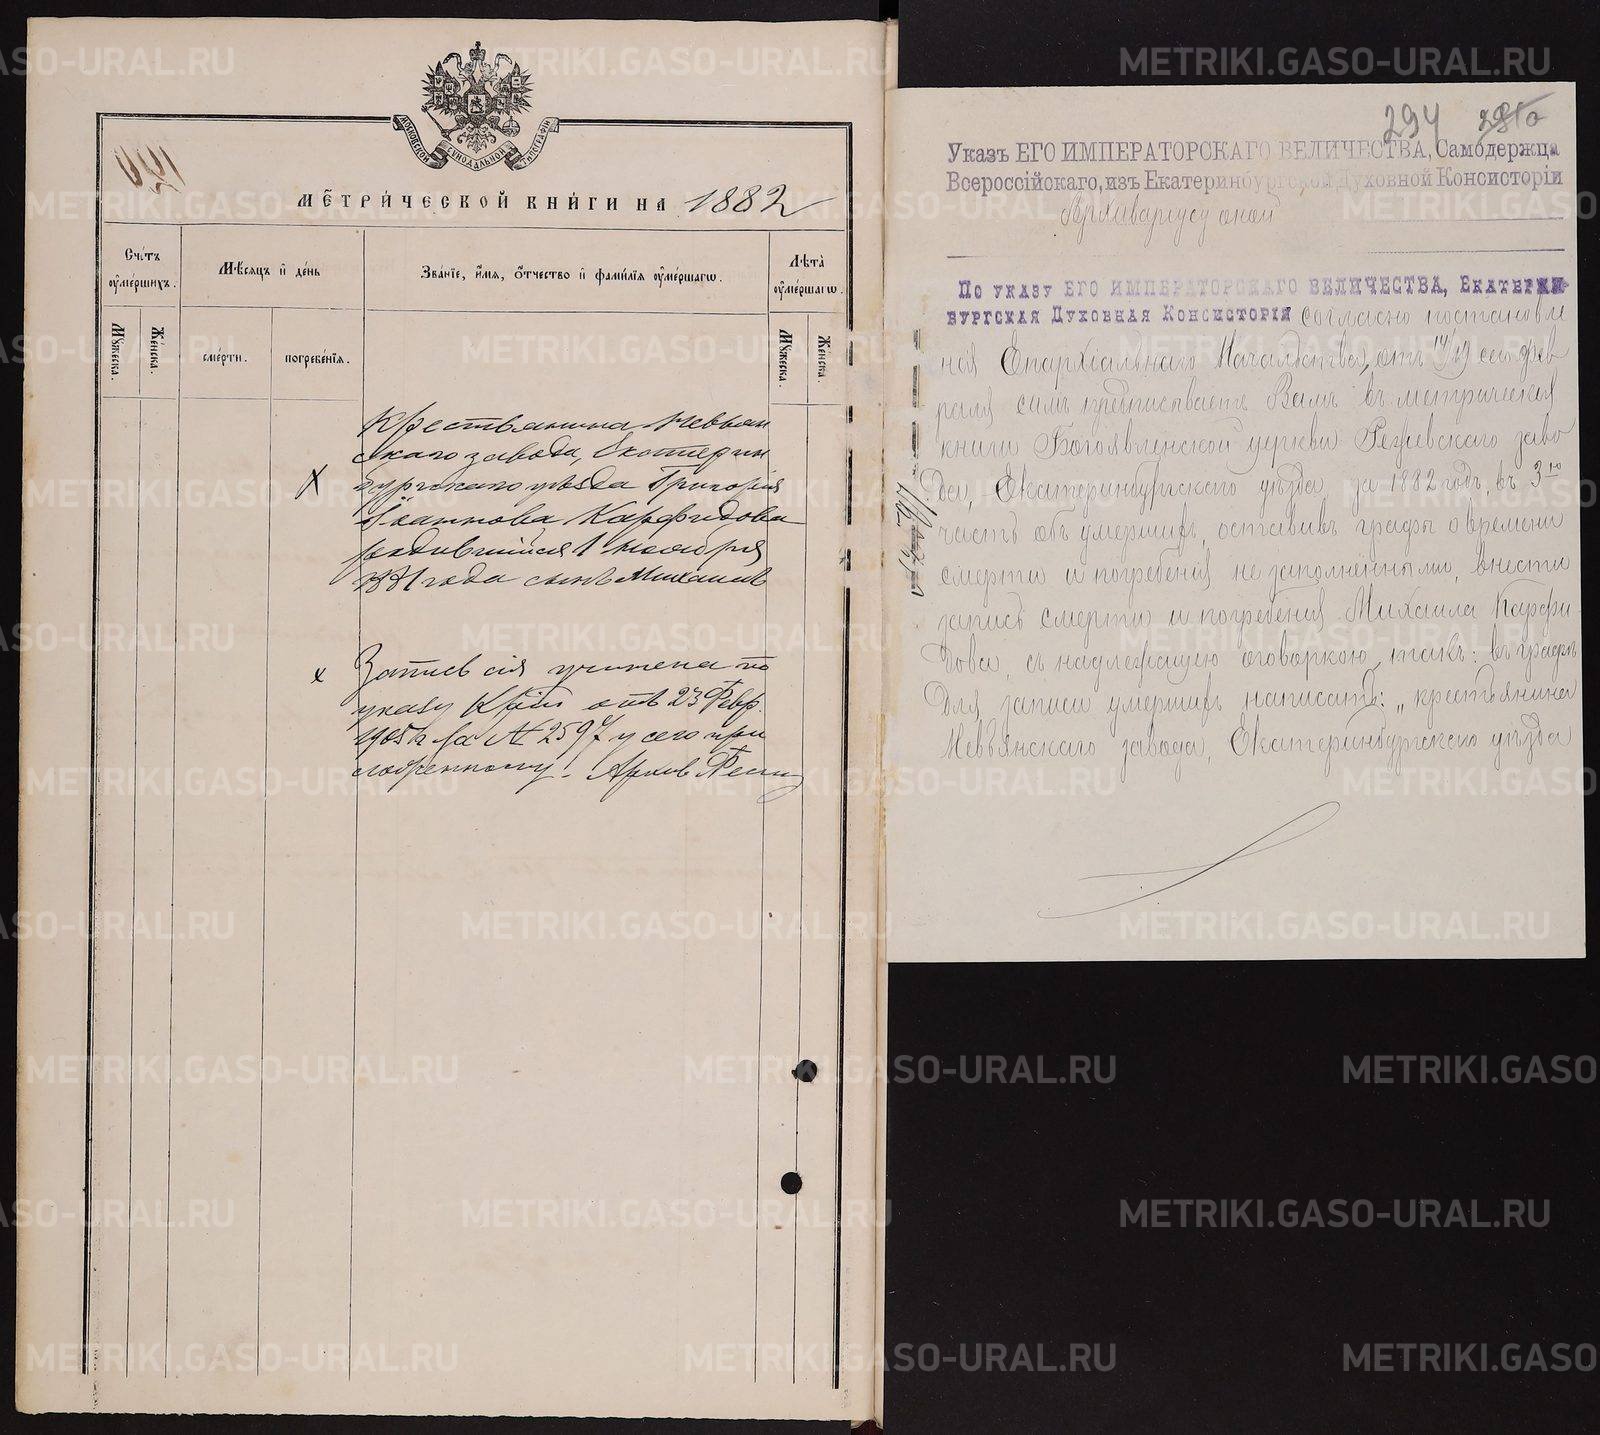 МОСКОВСКОЙ СѴНОДАЛЬНОЙ ТИПОГРАФІИ
МЕТРИ́ЧЕСКОЙ КНИ́ГИ НА 1882
Сче́тъ ᲂу҆ме́ршихъ.
Мѣ́сяцъ и҆ де́нь
Зва́нїе, и҆́мя, ѻ҆́тчество и҆ фами́лїя ᲂу҆ме́ршагѡ.
Лѣта̀ ᲂу҆ме́ршагѡ.
Мꙋ́жеска.
Же́нска.
сме́рти.
погребе́нїя.
Мꙋ́жеска.
Же́нска.
Крестьянина Невьян
скаго завода, Екатерин
бургскаго уѣзда Григорія
Карфидова
родившійся 1 ноября
1881 года сынъ Михаилъ
Запись сія учинена по
указу отъ 23 Февр.
1905 г. за № 2597 у сего при
ложенному. Архив.
294
Указъ ЕГО ИМПЕРАТОРСКАГО ВЕЛИЧЕСТВА, Самодержца
Всероссійскаго, изъ Екатеринбургской Духовной Консисторіи
Архиваріусу оной
По указу ЕГО ИМПЕРАТОРСКАГО ВЕЛИЧЕСТВА, Екатерин-
бургская Духовная Консисторія согласно постановле
нія Епархіальнаго Начальства, отъ 14/19 сего фев
раля симъ предписываетъ Вамъ въ метрическія
книги Богоявленской церкви Режевскаго заво
да, Екатеринбургскаго уѣзда за 1882 годъ, въ 3ю
часть объ умершихъ, оставивъ графы о времени
смерти и погребенія не заполненными, внести
запись смерти и погребенія Михаила Карфи
дова, съ надлежащею оговоркою, такъ: въ графѣ
для записи умершихъ написать: „крестьянина
Невьянскаго завода, Екатеринбургскаго уѣзда
METRIKI.GASO-URAL.RU